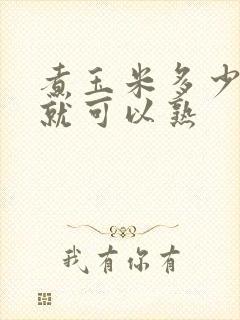 煮玉米多少
就可以熟
我有你有